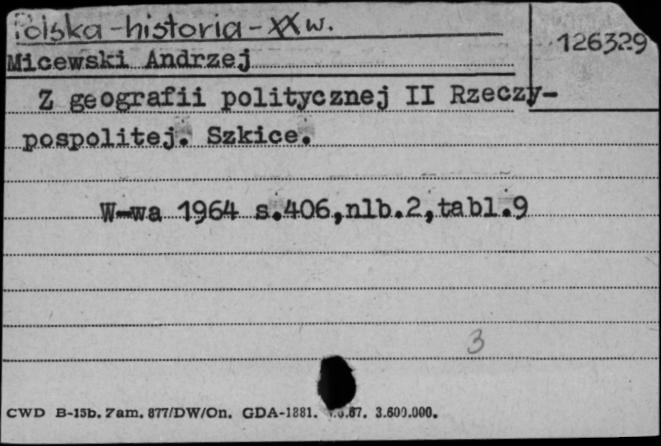 Polska-historia-XX w.
126329
Micewski Andrzej
Z geografii politycznej II Rzeczy-
pospolitej. Szkice.
W-wa 1964 s.406,nlb.2,tabl.9
3
CWD B-15b. Zam. 877/DW/On. GDA-1881. .67. 3.600.000.